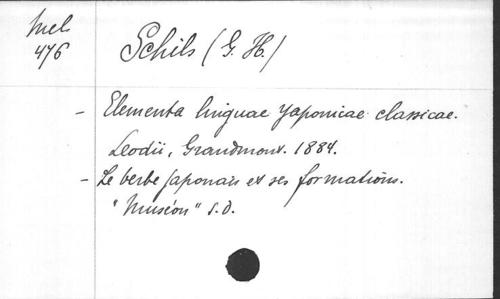 Mel
476
Schils (G. H.)
- Elementa linguae Yaponicae classicae.
Leodii, Grandmont. 1884.
- Le verbe japonais et ses formations.
"Muséon" s.d.